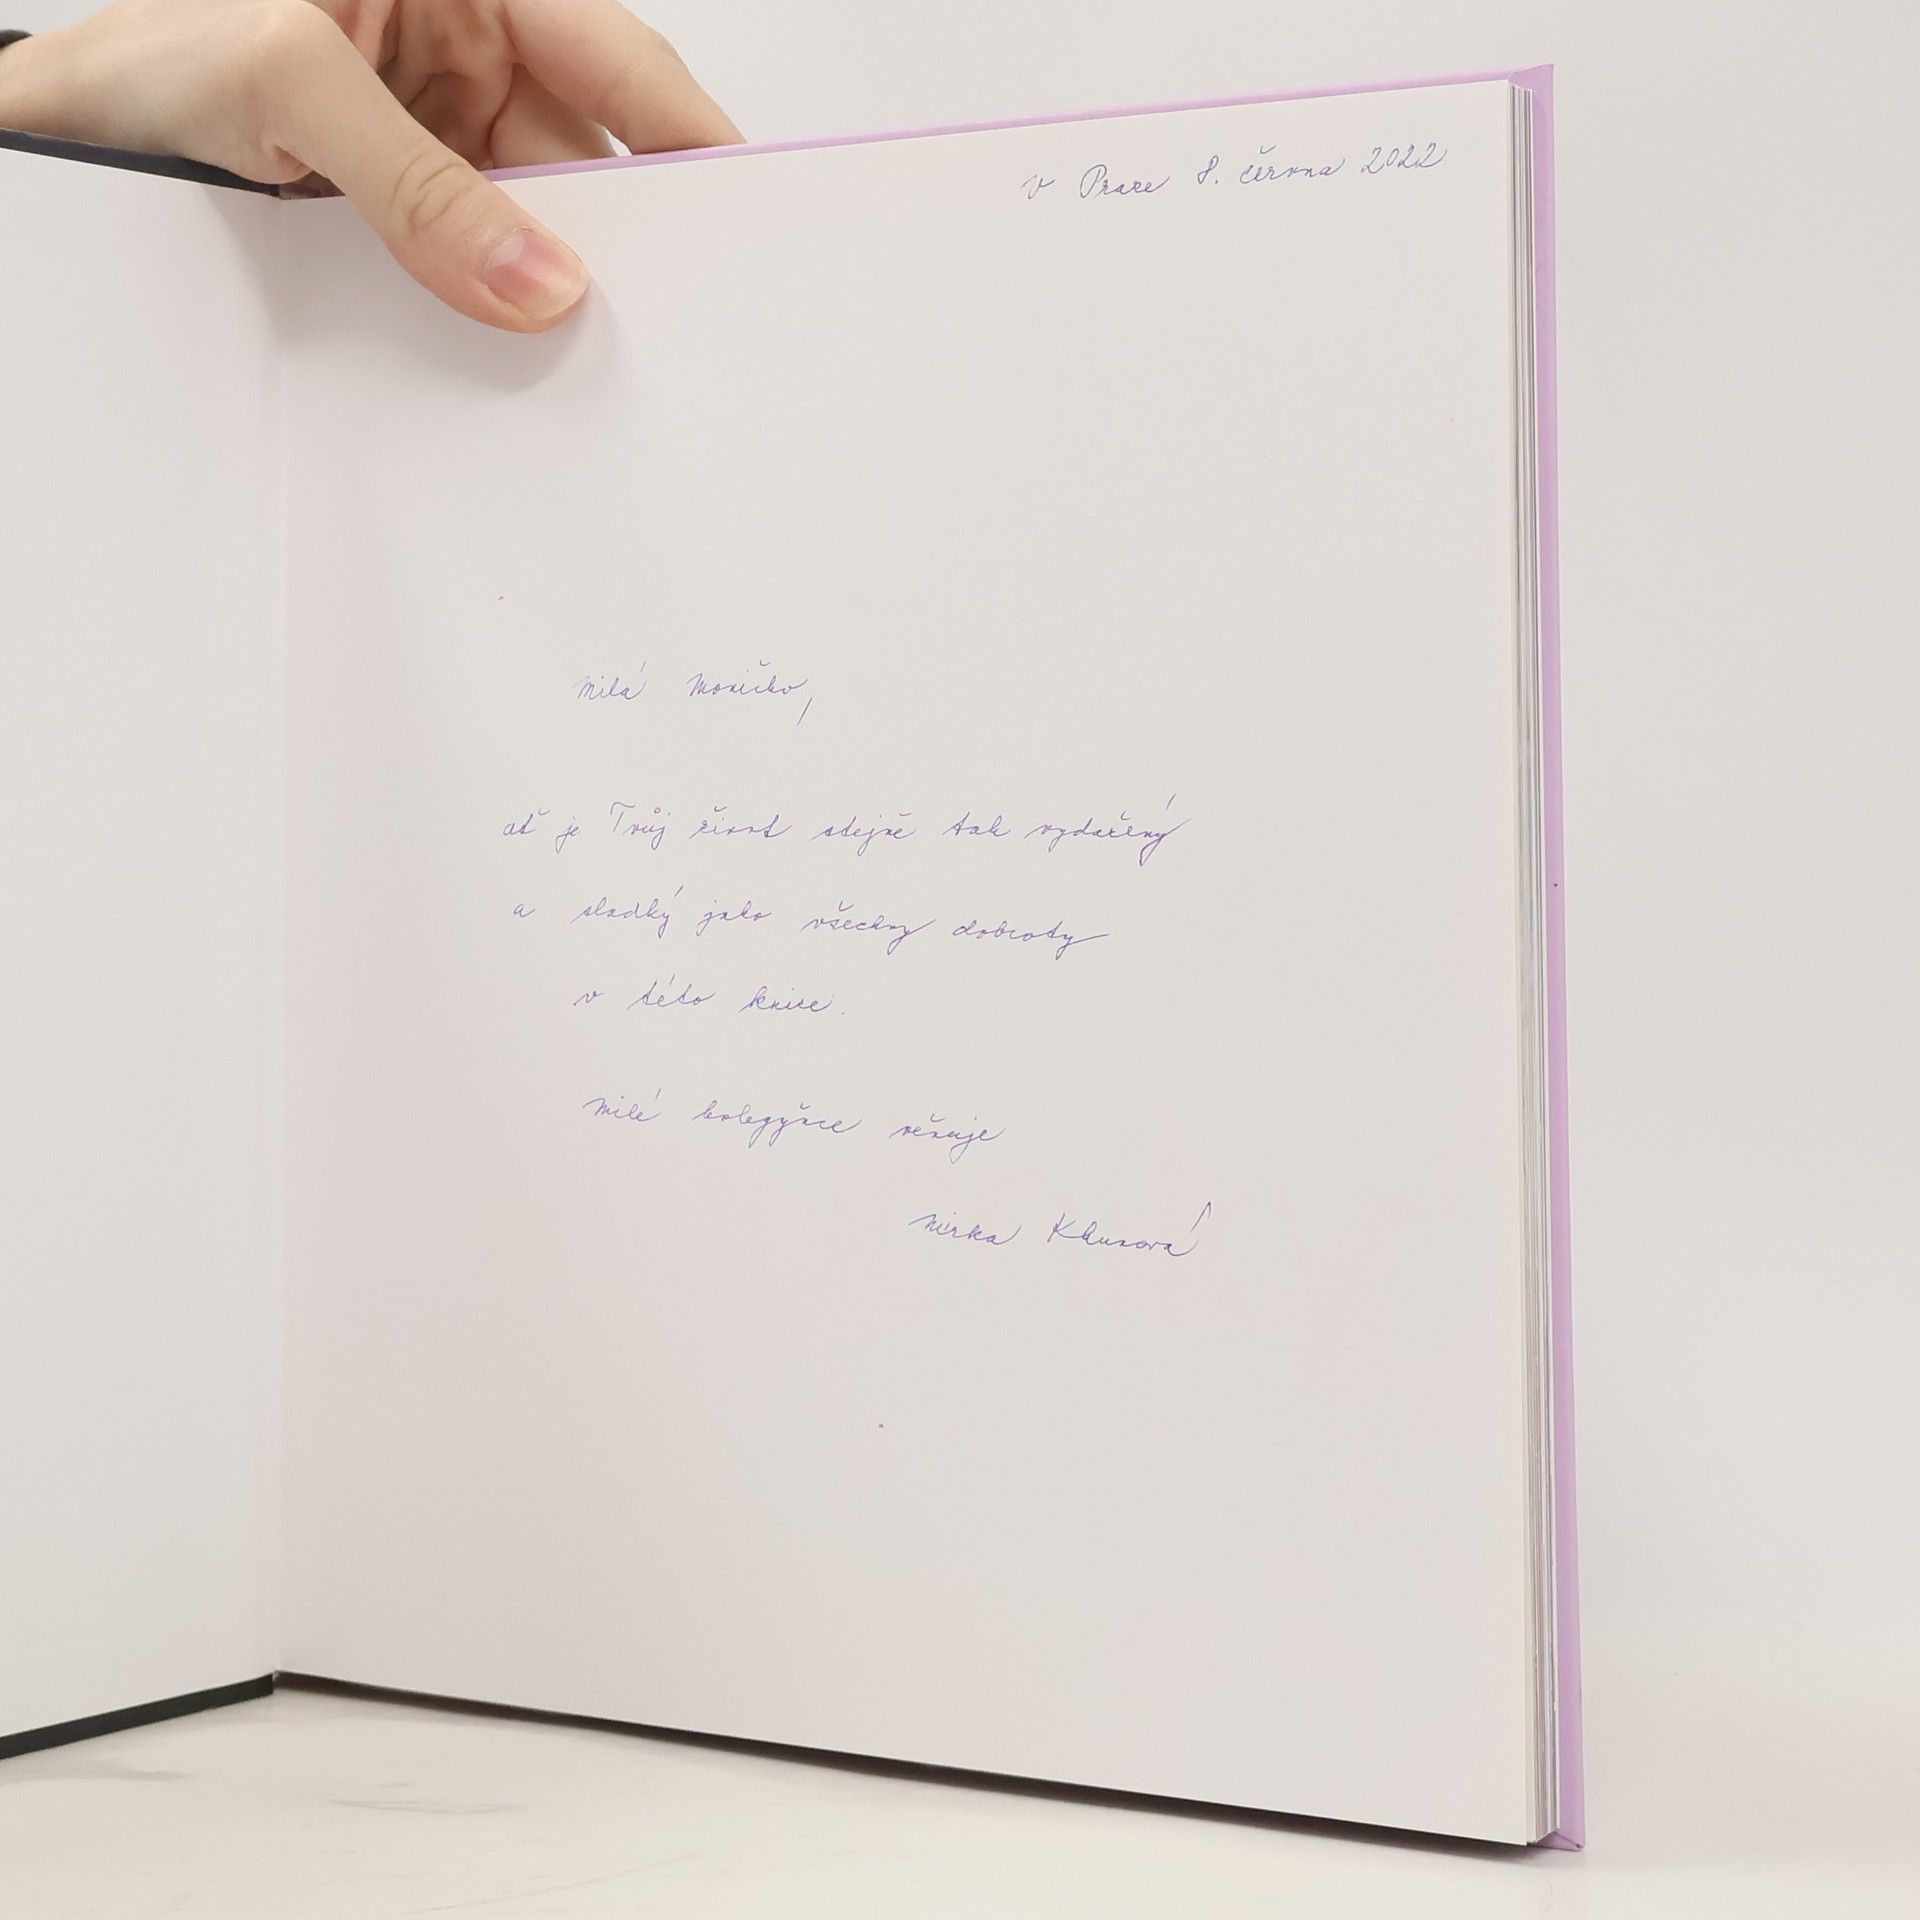 v Praze 8. června 2022
Milá Moničko,
ať je Tvůj život stejně tak vydařený
a sladký jako všechny dobroty
v této knize.
Milé kolegyňce věnuje
Mirka